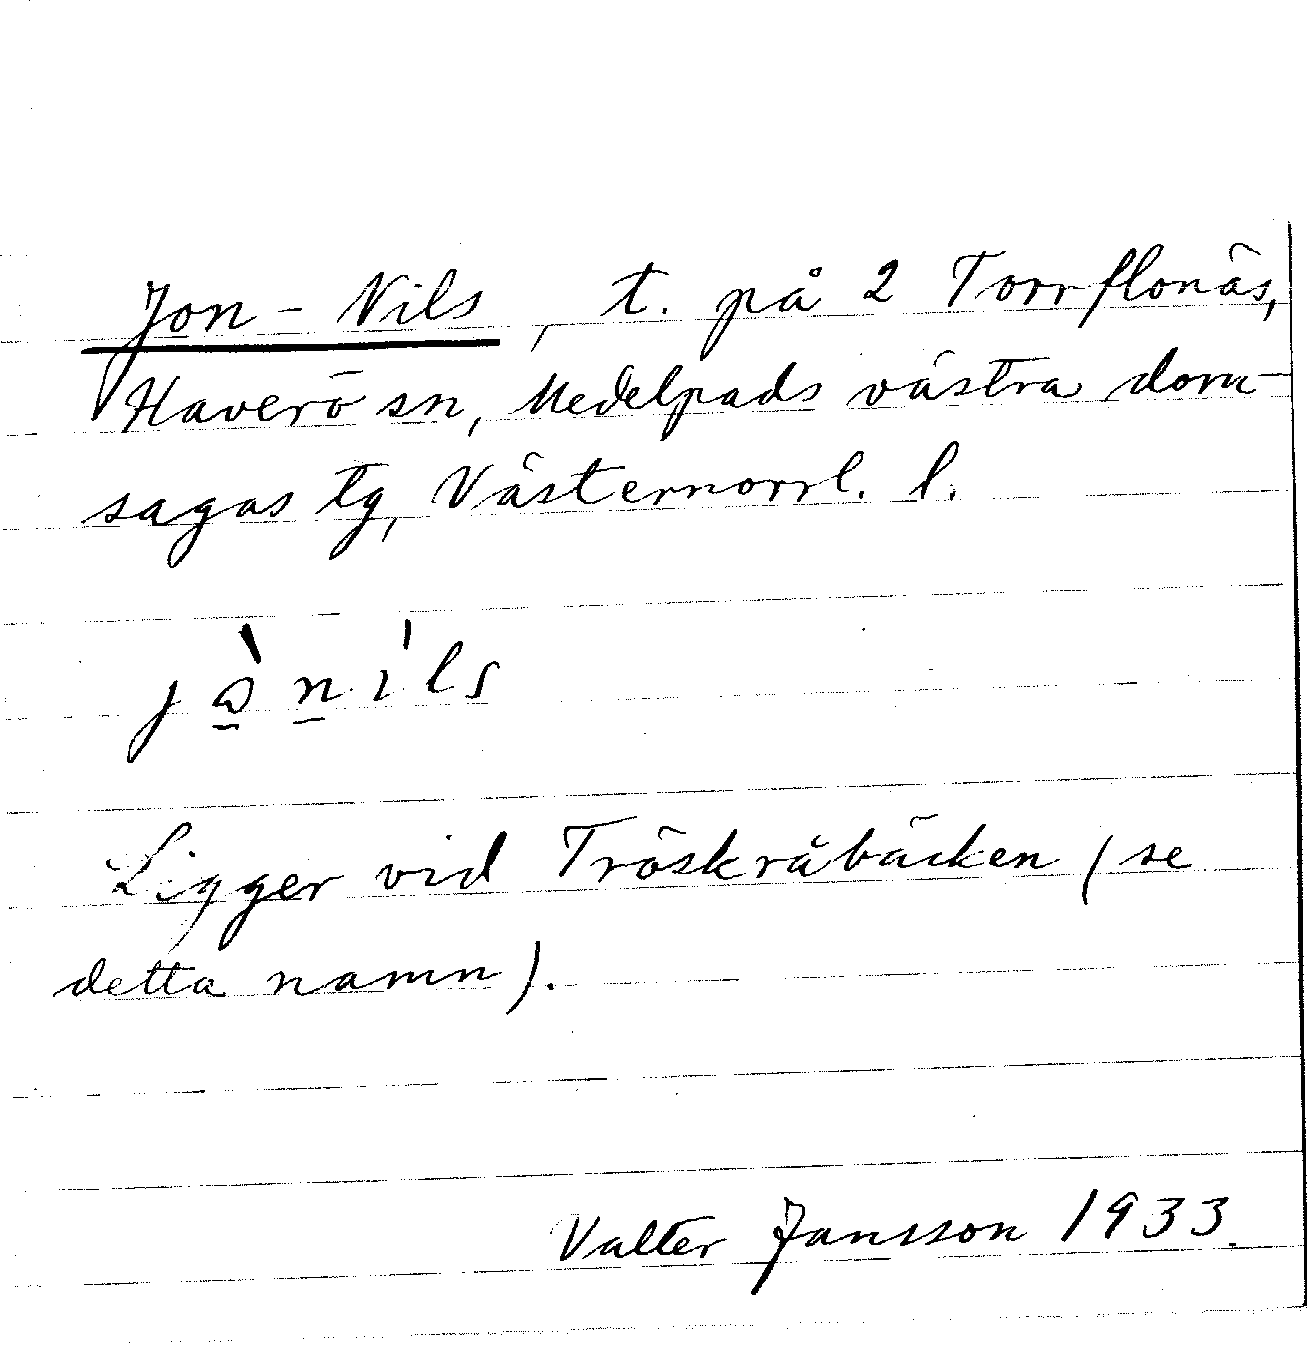 Jon-Nils, t. på 2 Torrflonäs,
Haverö sn, Medelpads västra dom-
sagas tg, Västernorrl. l.
Ligger vid Tröskråbäcken (se
detta namn).
Valter Jansson 1933.